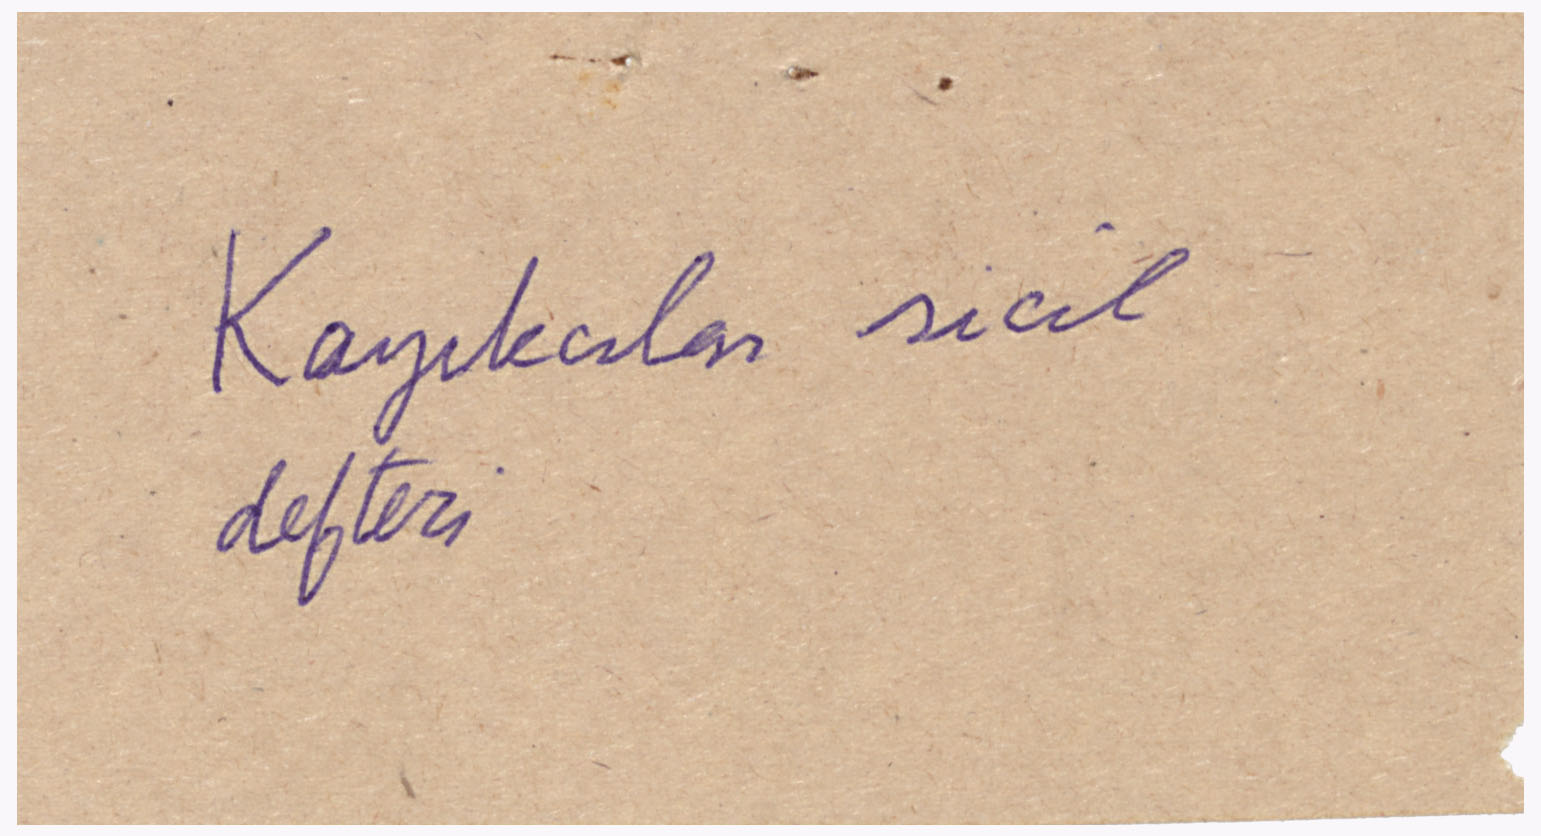 Kayıkcılar sicil
defteri